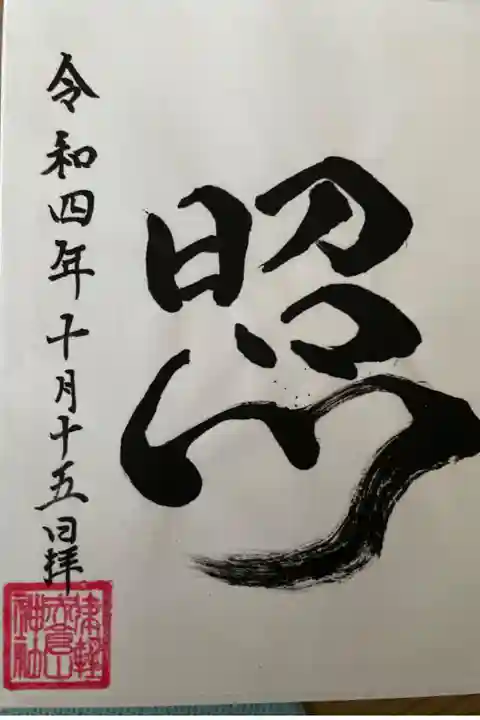 照
令和四年十月十五日拝
津軽
赤倉山
神社